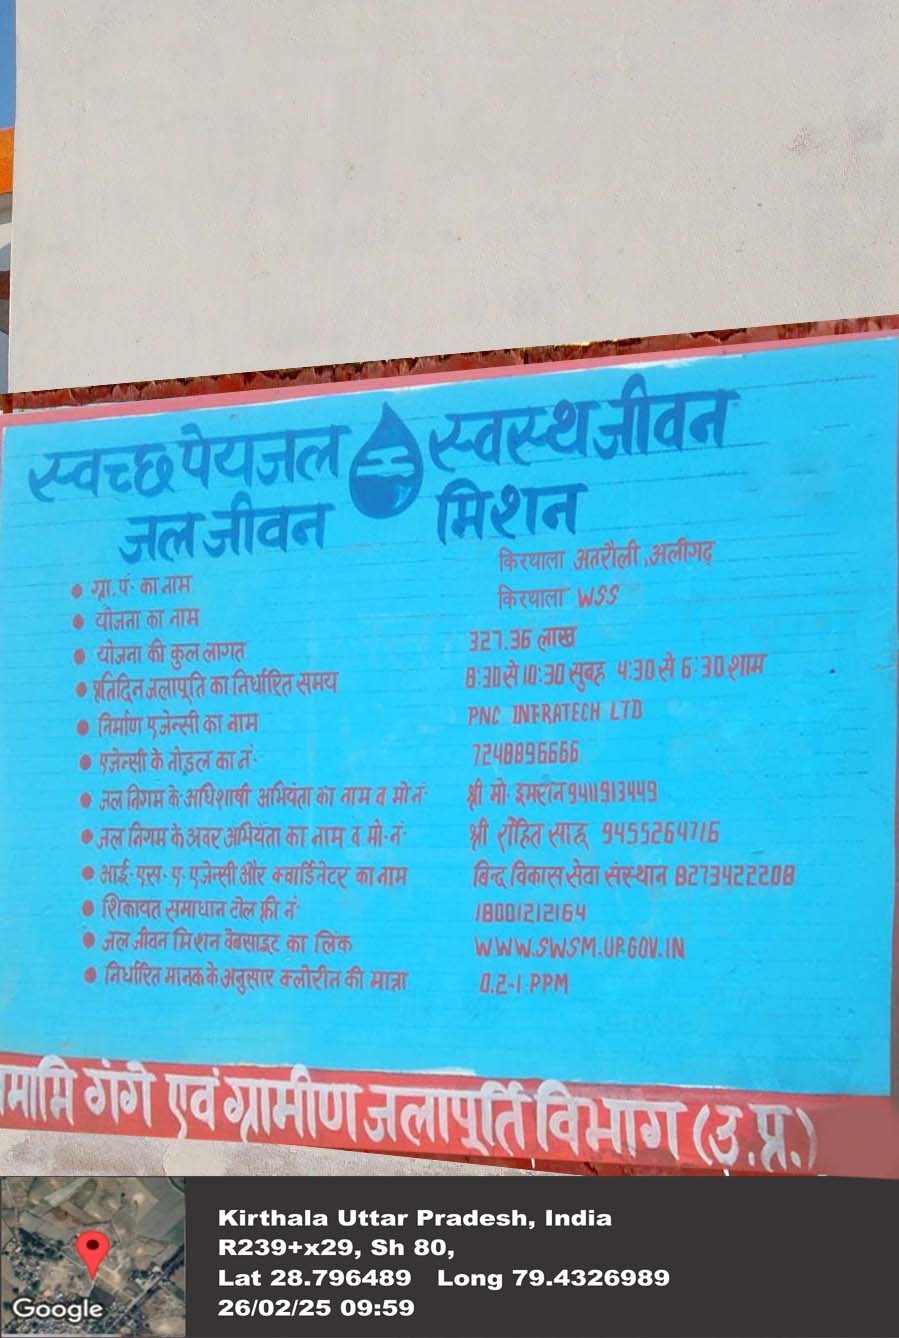 स्वच्छ पेयजल स्वस्थ जीवन
जल जीवन मिशन
• ग्रा.पं. का नाम किरथाला अतरौली, अलीगढ़
• योजना का नाम किरथाला WSS
• योजना की कुल लागत 327.36 लाख
• प्रतिदिन जलापूर्ति का निर्धारित समय 8:30 से 10:30 सुबह 4:30 से 6:30 शाम
• निर्माण एजेन्सी का नाम PNC INFRATECH LTD
• एजेन्सी के नोडल का नं. 7248896666
• जल निगम के अधिशाषी अभियंता का नाम व मो.नं. श्री मो. इमरान 9411913449
• जल निगम के अवर अभियंता का नाम व मो.नं. श्री रोहित साहू 9455264716
• आई.एस.ए. एजेन्सी और क्वार्डिनेटर का नाम बिन्द विकास सेवा संस्थान 8273422208
• शिकायत समाधान टोल फ्री नं. 18001212164
• जल जीवन मिशन वेबसाइट का लिंक WWW.SWSM.UP.GOV.IN
• निर्धारित मानक के अनुसार क्लोरीन की मात्रा 0.2-1 PPM
नमामि गंगे एवं ग्रामीण जलापूर्ति विभाग (उ.प्र.)
Google
Kirthala Uttar Pradesh, India
R239+x29, Sh 80,
Lat 28.796489 Long 79.4326989
26/02/25 09:59